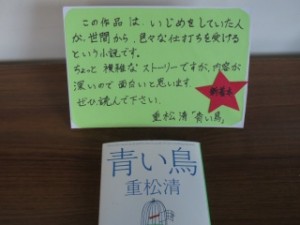 この作品は、いじめをしていた人
が、世間から、色々な仕打ちを受ける
という小説です。
ちょっと複雑なストーリーですが、内容が
深いので面白いと思います。
ぜひ、読んで下さい。
重松 清「青い鳥」
青い鳥
重松清